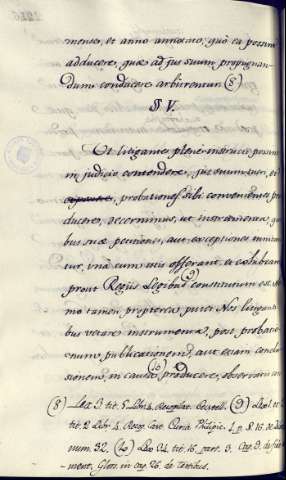 menses, et anno annorino, quò ea possint
adducere, quæ ad jus suum propugnan-
dum conducere arbitrentur (8)
§ V.
Ut litigantes plenè instructi possint
in judicio contendere, jus suum
probationes sibi convenientes pro-
ducere, decernimus, ut instrumenta qui-
bus suæ petitiones, aut exceptiones
tur, unà cum eis offerant, et exhibeant
prout Regiis Legibus (9) constitutum est.
mo tamen propterea putet Nos litiganti-
bus vetare instrumenta, post probatio-
num publicationem, aut etiam conclu-
sionem, in causa (10) producere, observatis
(8) Lex 3. tit. 5. Libr. 4. Recopilat. Castell. (9) Lex 1. tit.
tit. 2 Libr. 4. Recop. Curia Philipic. 1. p. § 16.
num. 32. (10) Lex 34. tit. 16. part. 3. Cap. 9. de
ment. Gloss. in cap. 26. de testibus.